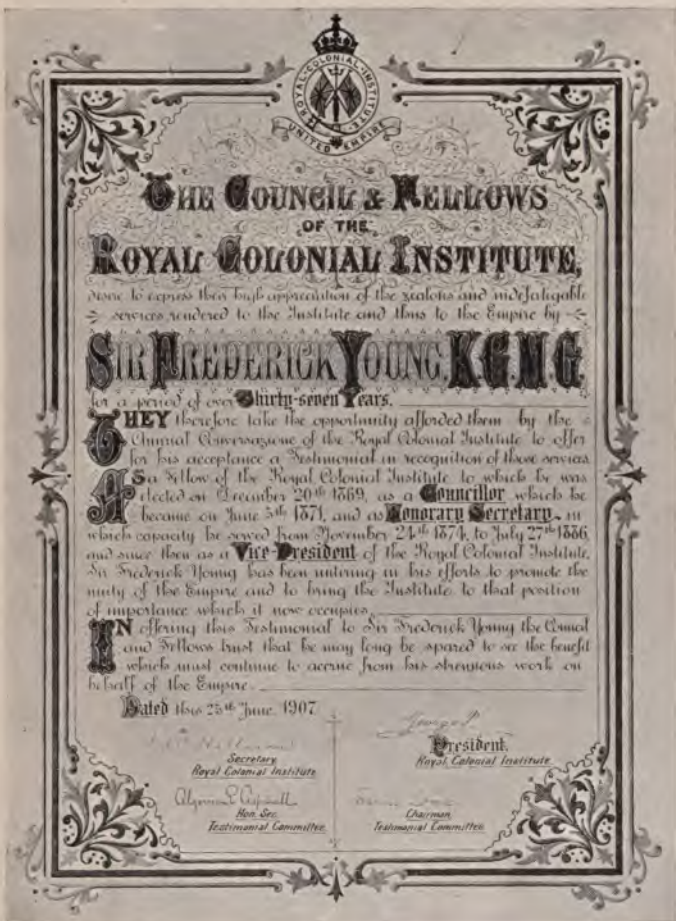 ROYAL·COLONIAL·INSTITUTE
UNITED EMPIRE
THE COUNCIL & FELLOWS
OF THE
ROYAL COLONIAL INSTITUTE,
desire to express their high appreciation of the zealous and indefatigable
services rendered to the Institute and thus to the Empire by
SIR FREDERICK YOUNG, K.C.M.G.
for a period of over Thirty-seven Years.
THEY therefore take the opportunity afforded them by the
Annual Conversazione of the Royal Colonial Institute to offer
for his acceptance a Testimonial in recognition of those services.
AS a Fellow of the Royal Colonial Institute to which he was
elected on December 20th 1869, as a Councillor which he
became on June 5th 1871, and as Honorary Secretary, in
which capacity he served from November 24th 1874, to July 27th 1886,
and since then as a Vice-President of the Royal Colonial Institute,
Sir Frederick Young has been untiring in his efforts to promote the
unity of the Empire and to bring the Institute to that position
of importance which it now occupies.
IN offering this Testimonial to Sir Frederick Young the Council
and Fellows trust that he may long be spared to see the benefit
which must continue to accrue from his strenuous work on
behalf of the Empire.
Dated this 25th June, 1907
George P
President,
Royal Colonial Institute
Secretary
Royal Colonial Institute
Algernon E Aspinall
Hon. Sec.
Testimonial Committee
Chairman
Testimonial Committee